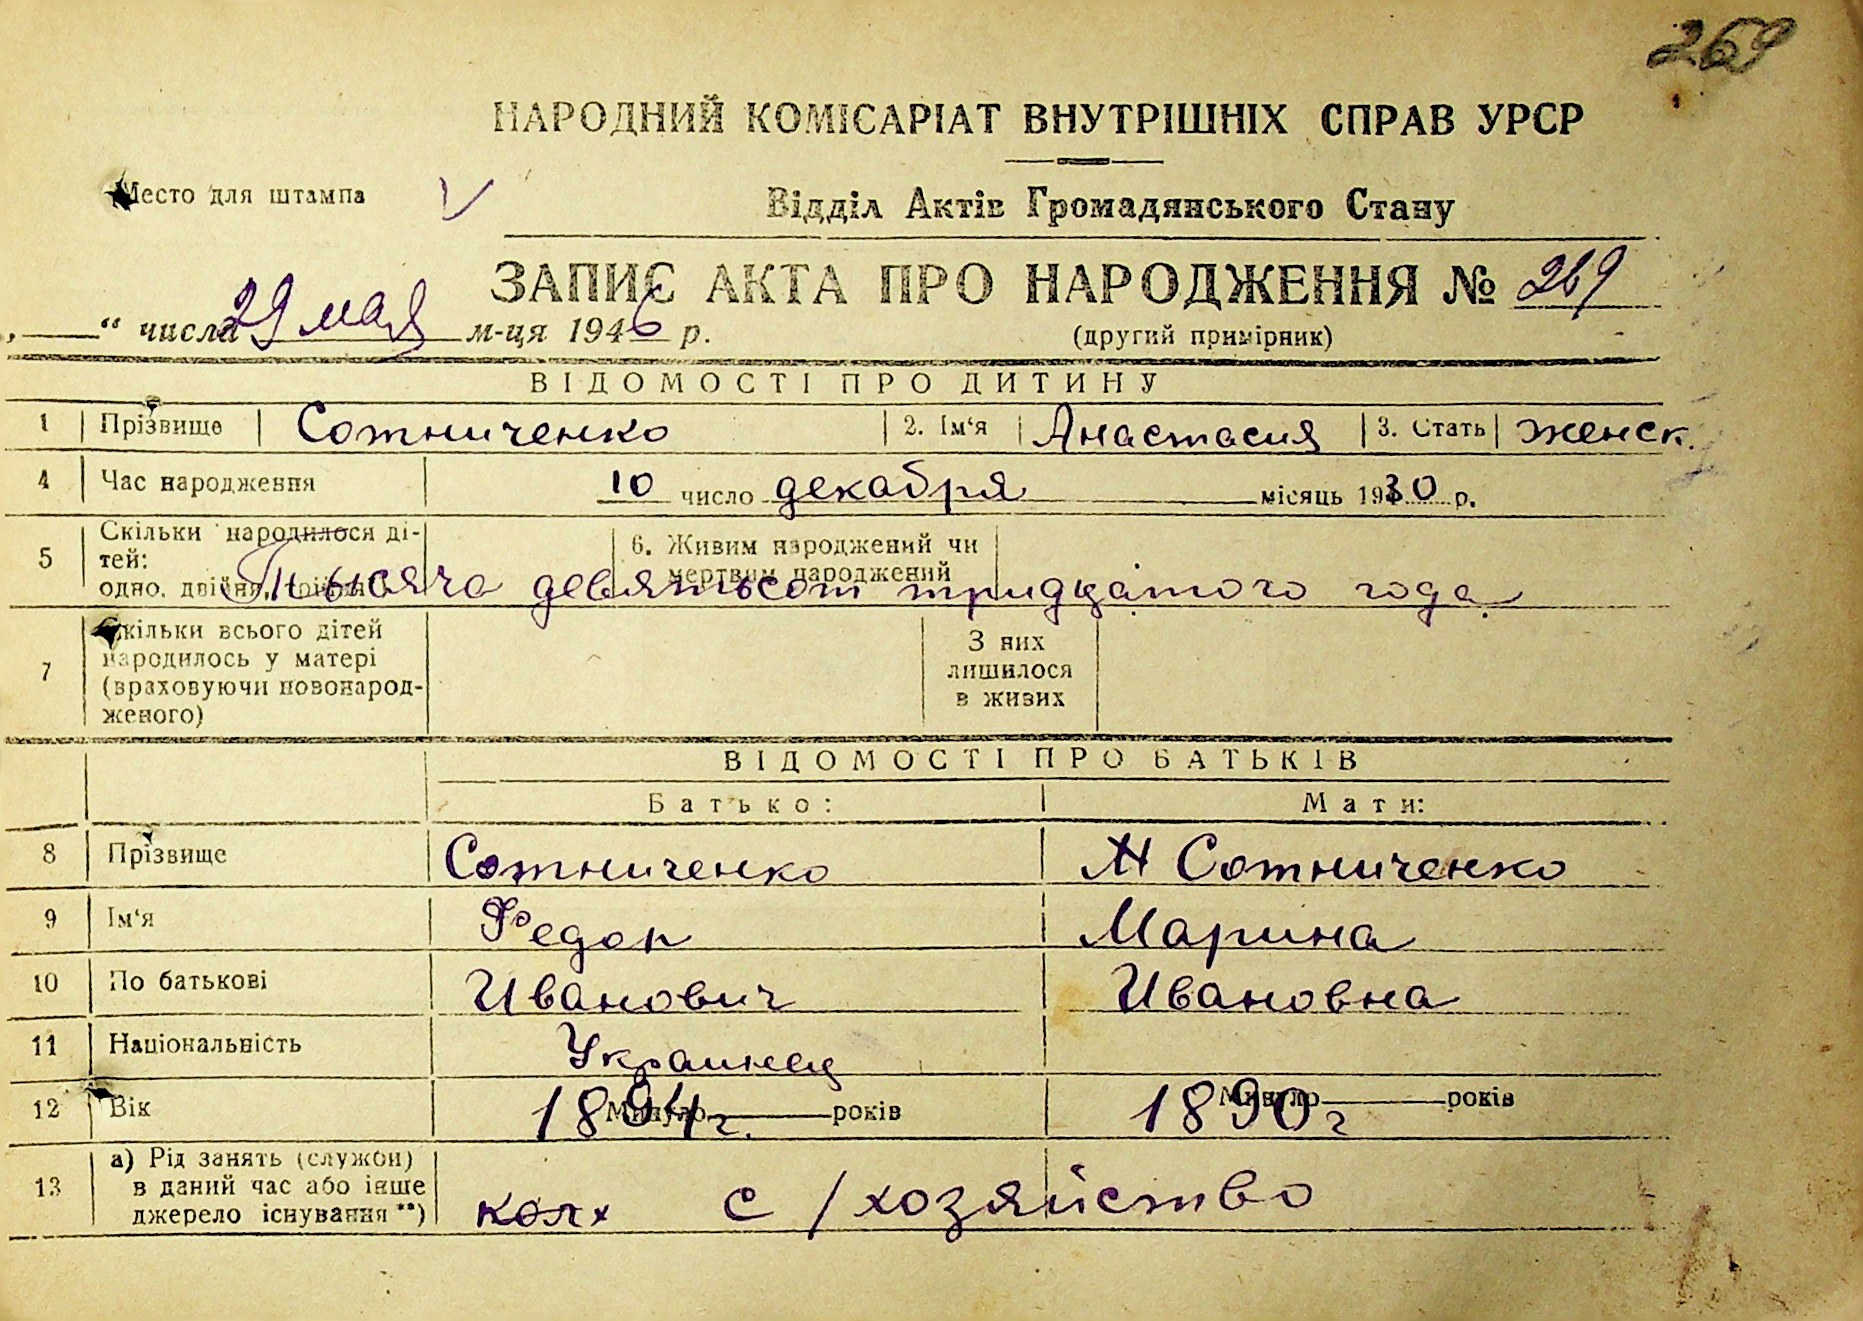 269
НАРОДНИЙ КОМІСАРІАТ ВНУТРІШНІХ СПРАВ УРСР
Место для штампа V
Відділ Актів Громадянського Стану
ЗАПИС АКТА ПРО НАРОДЖЕННЯ № 269
„ “ числа 29 мая м-ця 1946 р.
(другий примірник)
ВІДОМОСТІ ПРО ДИТИНУ
1 Прізвище Сотниченко 2. Ім‘я Анастасия 3. Стать женск.
4 Час народження 10 число декабря місяць 1930 р.
5 Скільки народилося ді-
тей:
одно, двійня, трійня 6. Живим народжений чи
мертвим народжений
Тысяча девятьсот тридцатого года
7 Скільки всього дітей
народилось у матері
(враховуючи новонарод-
женого) З них
лишилося
в живих
ВІДОМОСТІ ПРО БАТЬКІВ
Батько: Мати:
8 Прізвище Сотниченко Сотниченко
9 Ім‘я Федор Марина
10 По батькові Иванович Ивановна
11 Національність Украинец
12 Вік 1894 г. Минуло років 1890 г Минуло років
13 а) Рід занять (служби)
в даний час або інше
джерело існування **) колх с/хозяйство